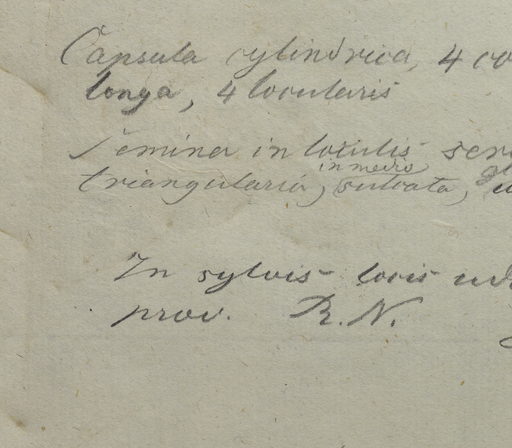 Capsula cylindrica, 4
longa, 4 locularis
Semina in loculis
in meirs
triangularia, sulcata,
In sylvis locis
prov. R. N.